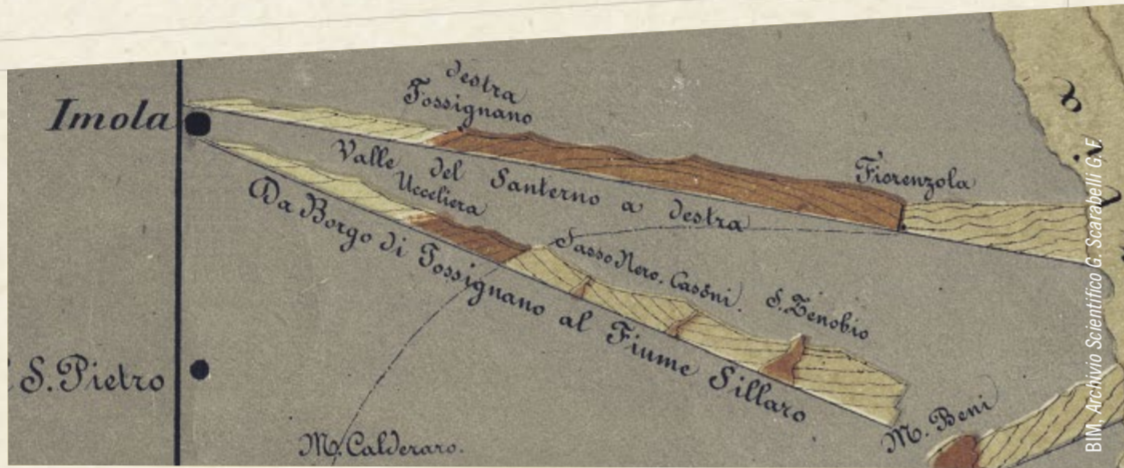 destra
Tossignano
Imola
Valle del Santerno a destra
Fiorenzola
Ucceliera
Da Borgo di Tossignano al Fiume Sillaro
Sasso Nero. Casóni. S. Zenobio
S. Pietro
M. Calderaro.
M. Beni
BIM, Archivio Scientifico G. Scarabelli G.F.